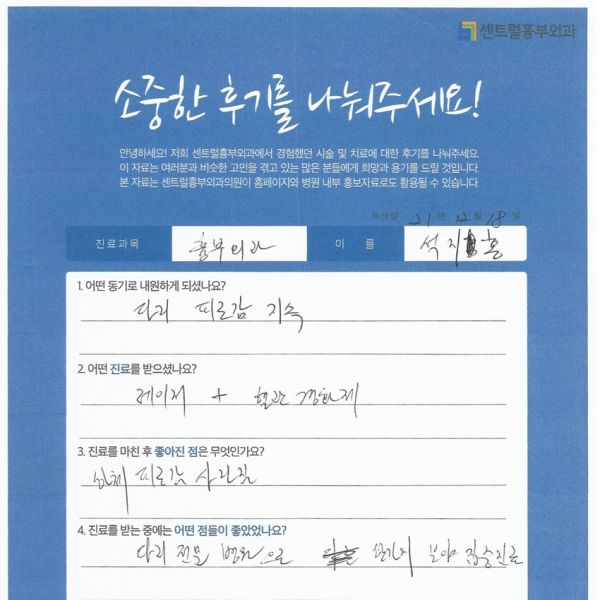 센트럴흉부외과
소중한 후기를 나눠주세요!
안녕하세요! 저희 센트럴흉부외과에서 경험했던 시술 및 치료에 대한 후기를 나눠주세요.
이 자료는 여러분과 비슷한 고민을 겪고 있는 많은 분들에게 희망과 용기를 드릴 것입니다.
본 자료는 센트럴흉부외과의원이 홈페이지와 병원 내부 홍보자료로도 활용될 수 있습니다.
작성일 21 년 12 월 18 일
진료과목 흉부외과 이 름 석지홍
1. 어떤 동기로 내원하게 되셨나요?
다리 피로감 지속
2. 어떤 진료를 받으셨나요?
레이저 + 혈관 경화제
3. 진료를 마친 후 좋아진 점은 무엇인가요?
하체 피로감 사라짐
4. 진료를 받는 중에는 어떤 점들이 좋았었나요?
다리 전문 병원으로 한가지 분야 집중진료